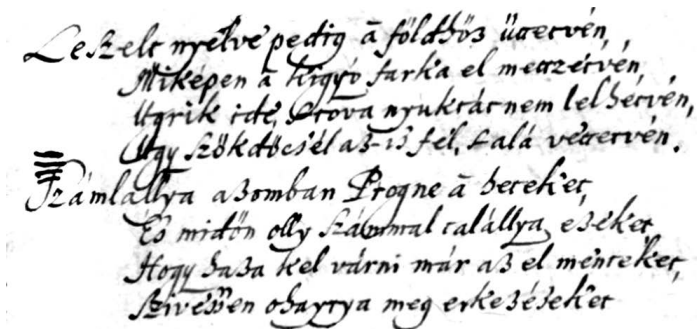 Leszelt nyelve pedig à földhöz üttetvén,
Miképen à kigyó farka el mettzetvén,
Ugrik ide, s tova nyuktát nem lelhetvén,
Ugy szökdöcsél az-is fel, s alá vettetvén.
Számlállya azomban Progne à heteket,
És midőn olly számmal talállya ezeket
Hogy haza kel várni már az el menteket,
Szivessen ohaytya meg erkezéseket